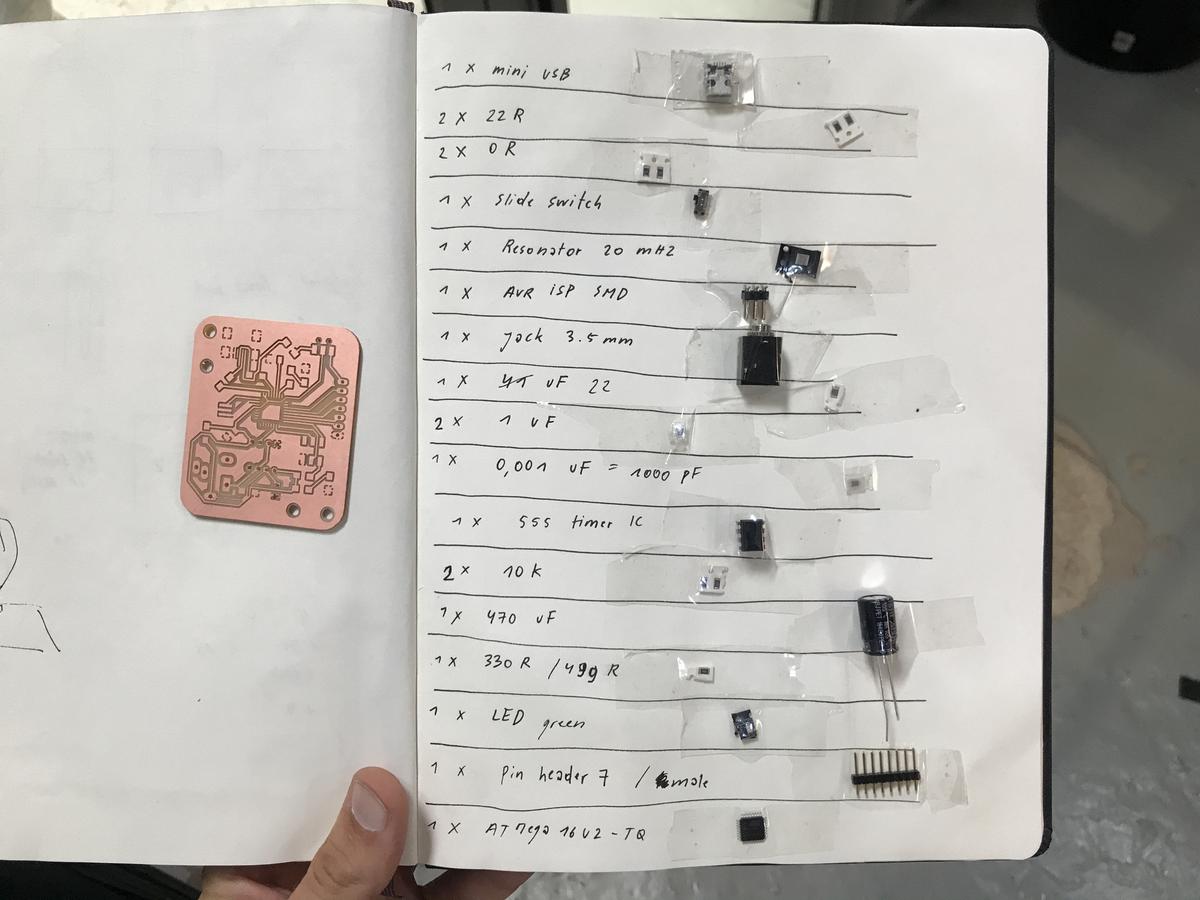 1 x mini USB
2 x 22 R
2 x 0 R
1 x Slide switch
1 x Resonator 20 mHz
1 x AVR iSP SMD
1 x jack 3.5 mm
1 x uF 22
2 x 1 uF
1 x 0,001 uF = 1000 pF
1 x 555 timer IC
2 x 10 k
1 x 470 uF
1 x 330 R / 499 R
1 x LED green
1 x Pin header 7 / male
1 x ATMega 16U2-TQ